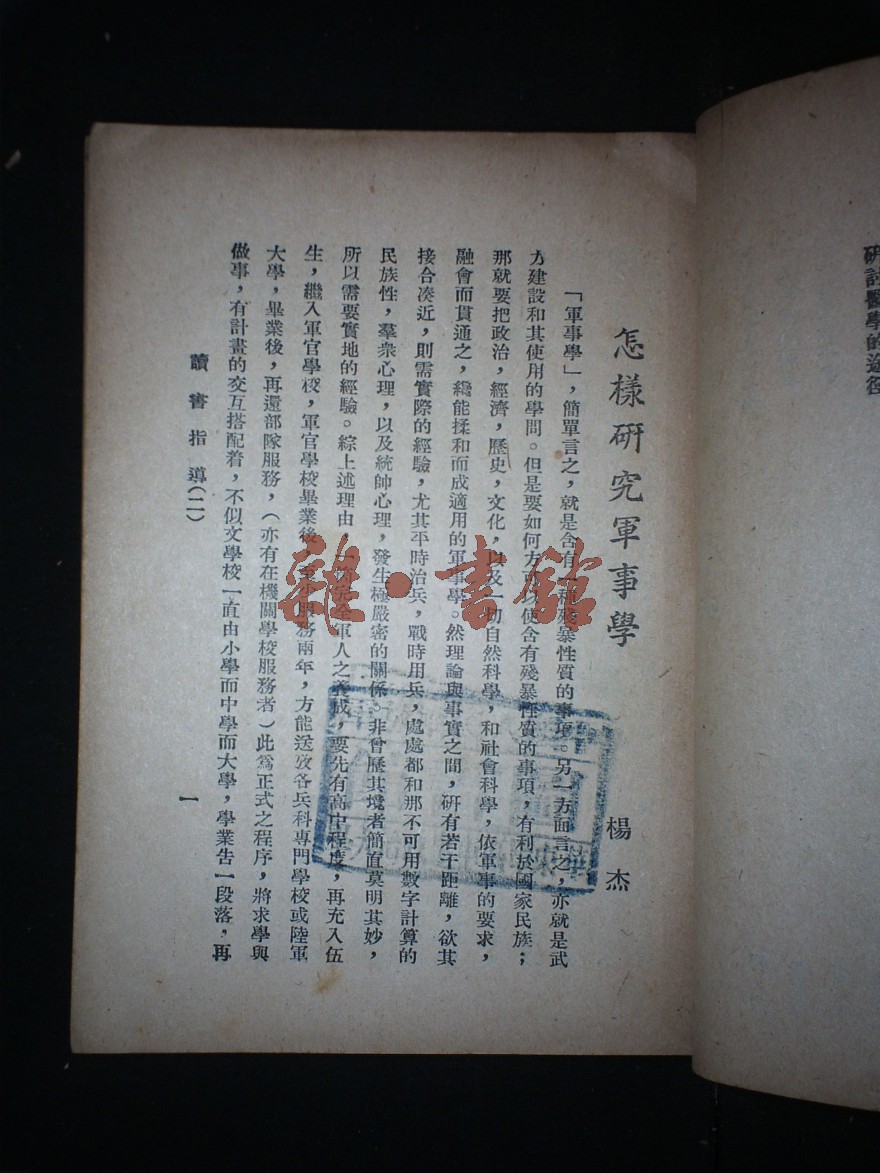 研討醫學的途徑
怎樣研究軍事學
楊杰
「軍事學」，簡單言之，就是含有一種殘暴性質的事項。另一方面言之，亦就是武
力建設和其使用的學問。但是要如何方可以使含有殘暴性質的事項，有利於國家民族；
那就要把政治，經濟，歷史，文化，以及一切自然科學，和社會科學，依軍事的要求，
融會而貫通之，纔能揉和而成適用的軍事學。然理論與事實之間，硏有若干距離，欲其
接合凑近，則需實際的經驗，尤其平時治兵，戰時用兵，處處都和那不可用數字計算的
民族性，羣衆心理，以及統帥心理，發生極嚴密的關係。非曾歷其境者簡直莫明其妙，
所以需要實地的經驗。綜上述理由，一個完全軍人之養成，要先有高中程度，再充入伍
生，繼入軍官學校，軍官學校畢業後，至少服務兩年，方能送攷各兵科專門學校或陸軍
大學，畢業後，再還部隊服務，（亦有在機關學校服務者）此爲正式之程序，將求學與
做事，有計畫的交互搭配着，不似文學校一直由小學而中學而大學，學業告一段落，再
讀書指導（二）
一
雜·書館